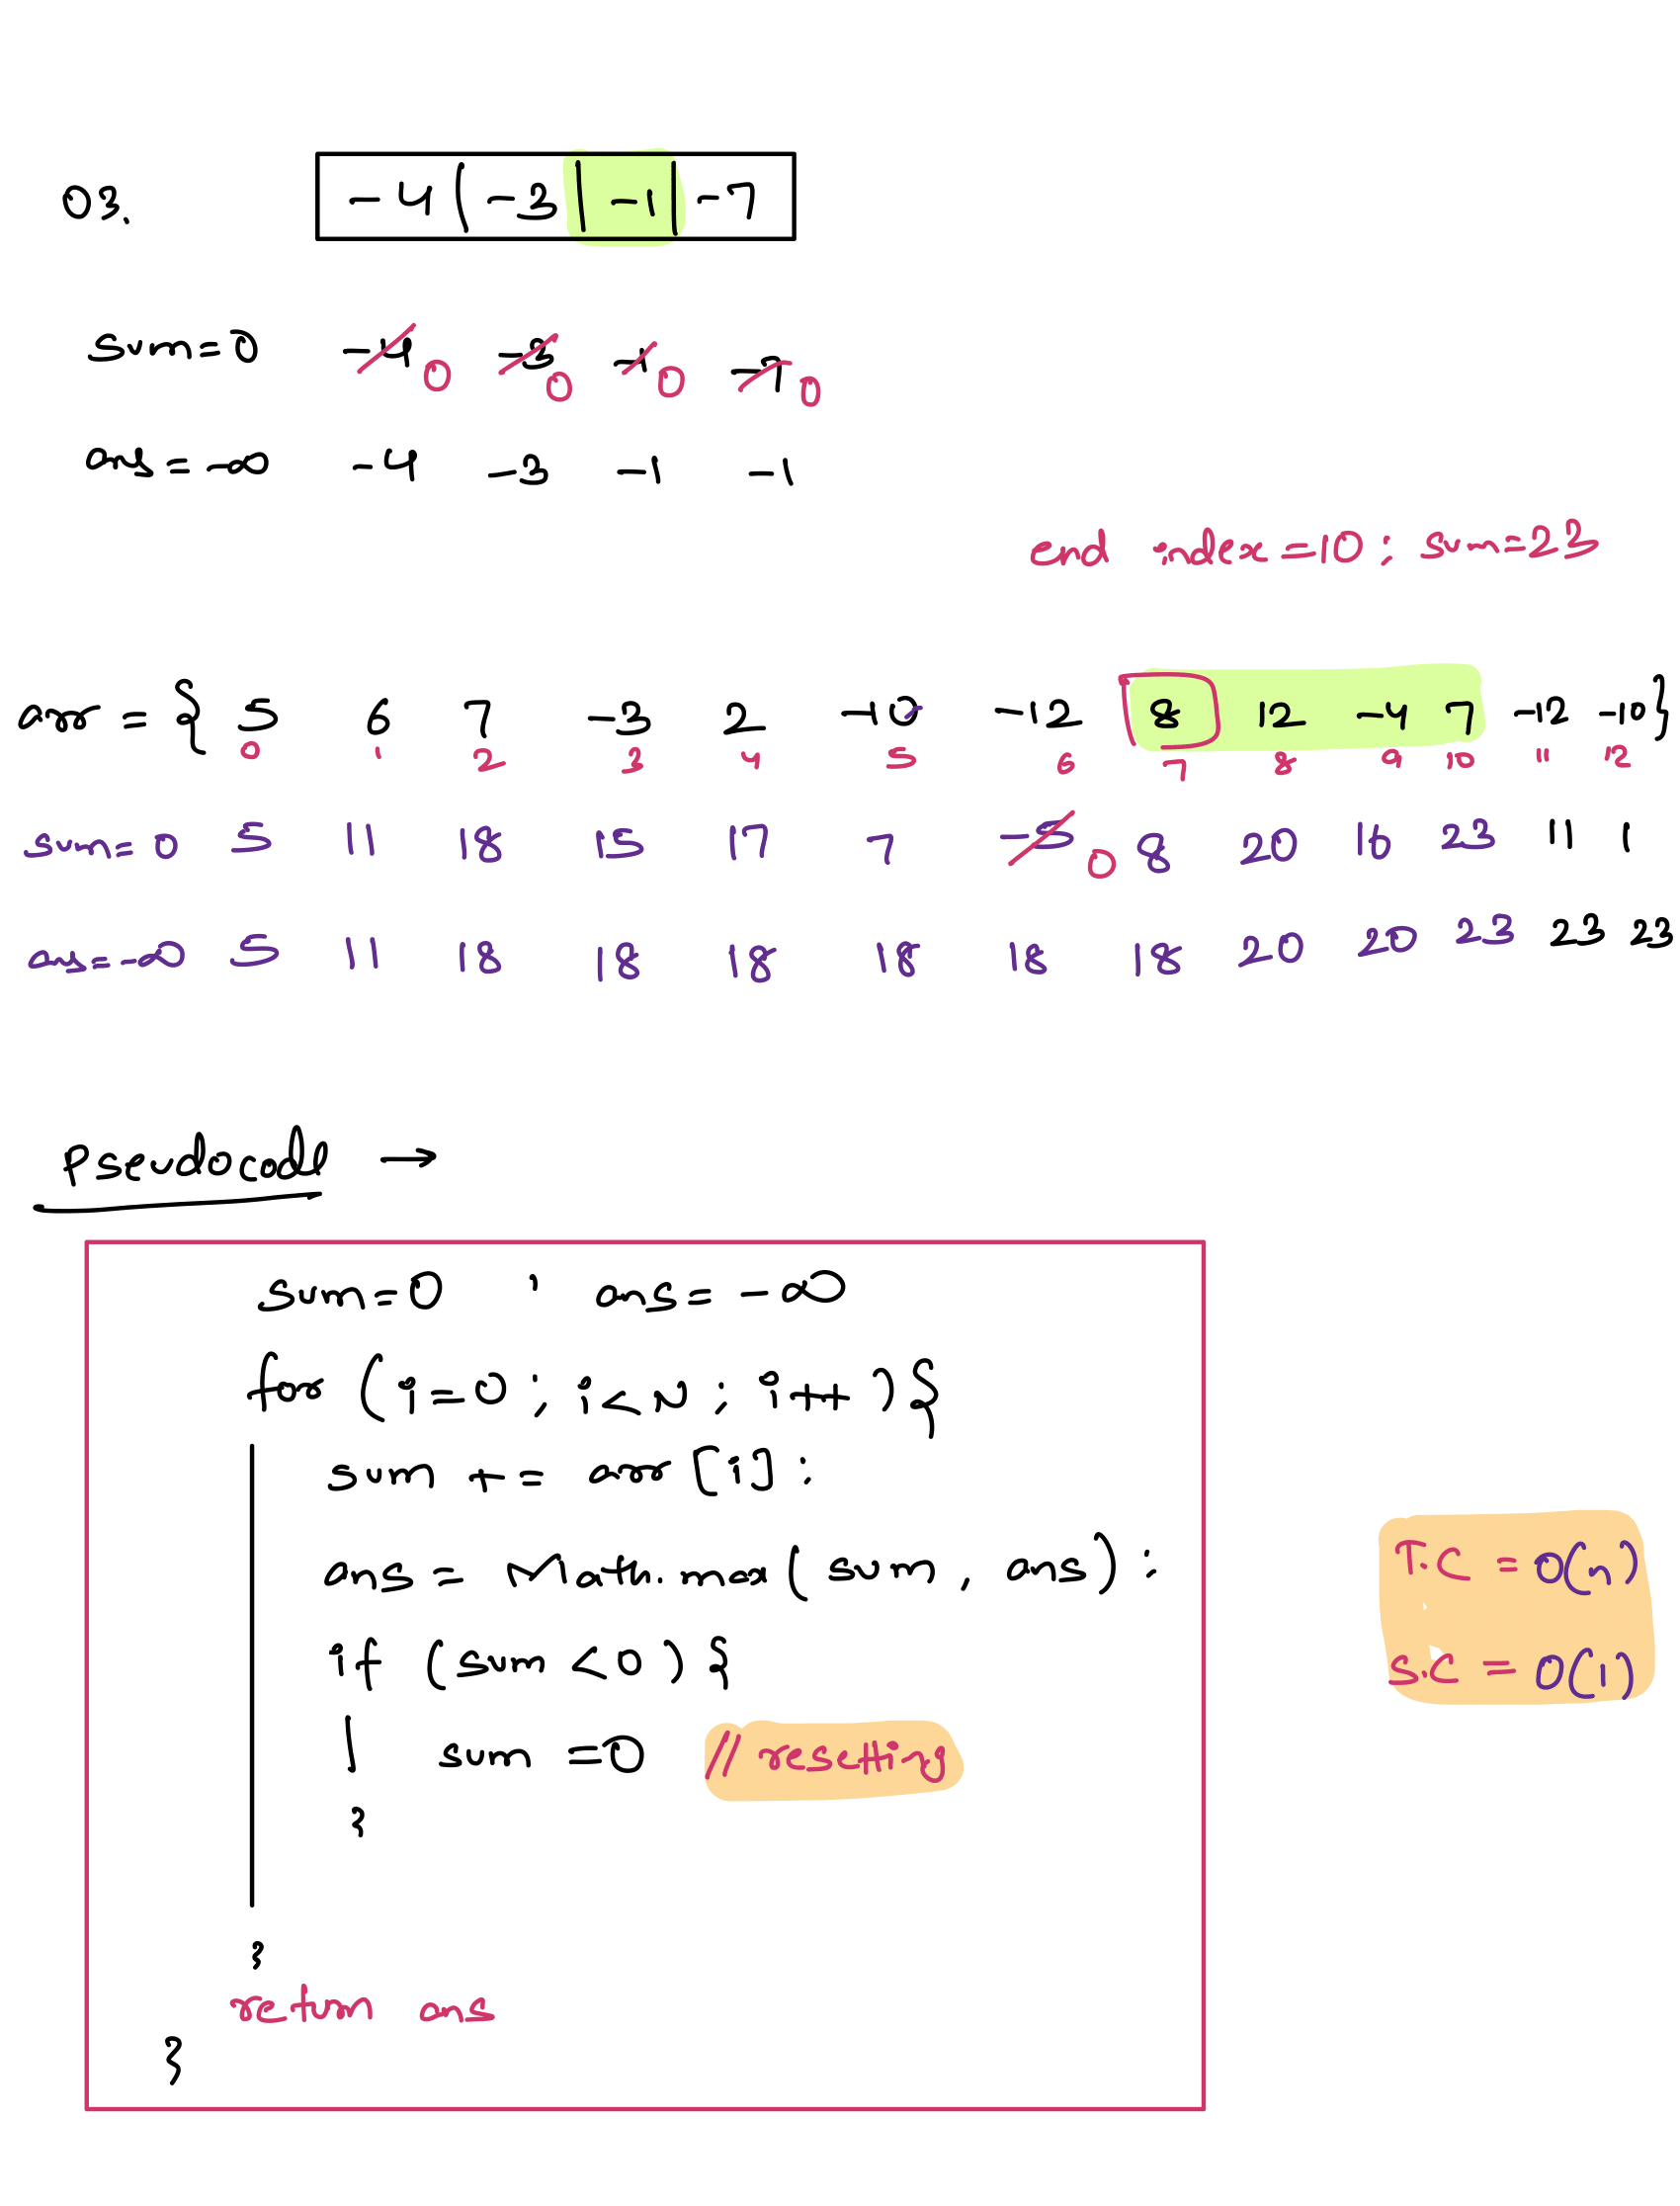 03. -4 | -3 | -1 | -7
sum=0 -4 0 -3 0 -1 0 -7 0
ans=-∞ -4 -3 -1 -1
end index=10; sum=23
arr = { 5 6 7 -3 2 -10 -12 8 12 -4 7 -12 -10}
0 1 2 3 4 5 6 7 8 9 10 11 12
sum=0 5 11 18 15 17 7 -5 0 8 20 16 23 11 1
ans=-∞ 5 11 18 18 18 18 18 18 20 20 23 23 23
Pseudocode →
sum=0 ; ans=-∞
for (i=0; i<N; i++){
sum += arr[i];
ans = Math.max(sum, ans);
if (sum <0){
sum =0 // resetting
}
}
return ans
}
T.C = O(n)
S.C = O(1)